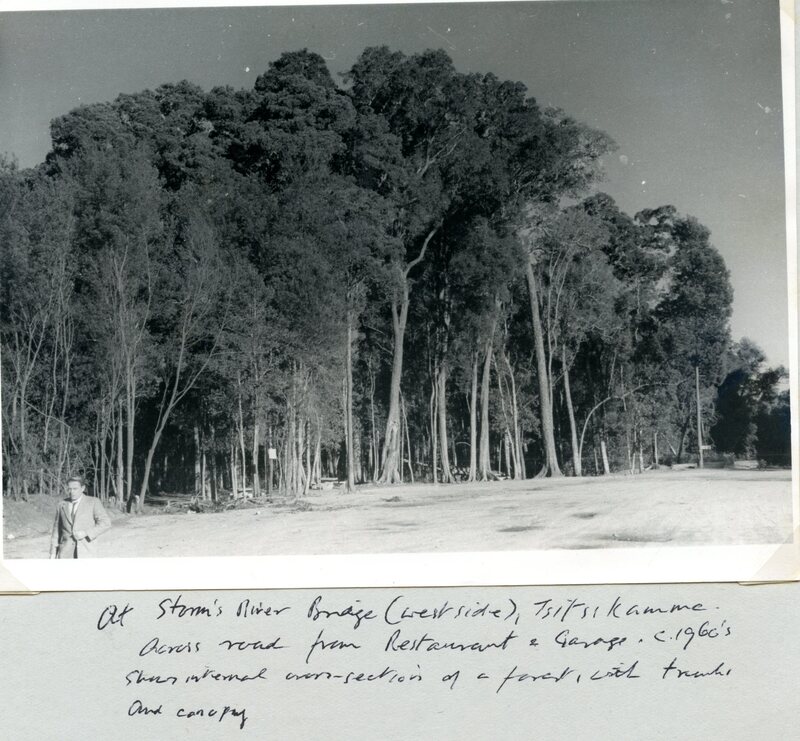 At Storm's River Bridge (west side), Tsitsikamma.
Across road from Restaurant & Garage. c.1960's
Shows internal cross-section of a forest, with trunks
And canopy